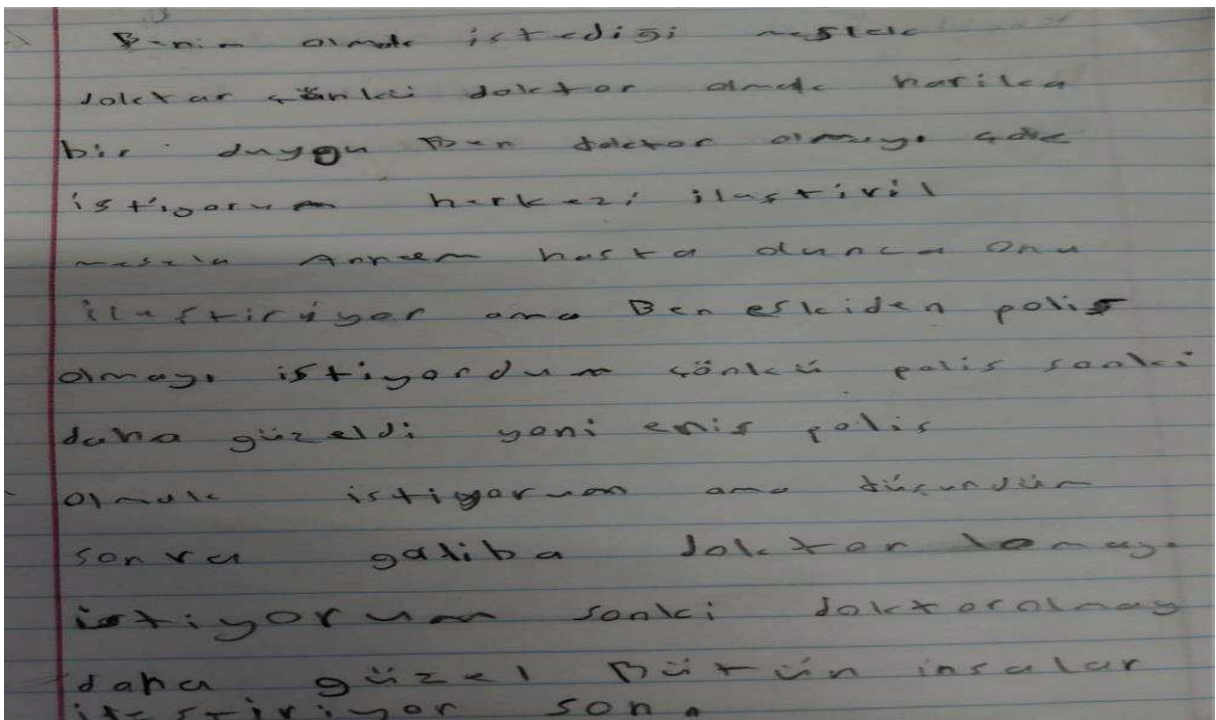 Benim olmak istediği meslek
doktor çünkü doktor olmak harika
bir duygu Ben doktor olmayı çok
istiyorum herkezi ilaştiril
mesela Annem hasta olunca onu
ilaştiriyor ama Ben eskiden polis
olmayı istiyordum çönkü polis sanki
daha güzeldi yani polis
olmak istiyorum ama düşundüm
sonra galiba doktor lomayı
istiyorum sanki doktorolmay
daha güzel Bütün insalar
son.